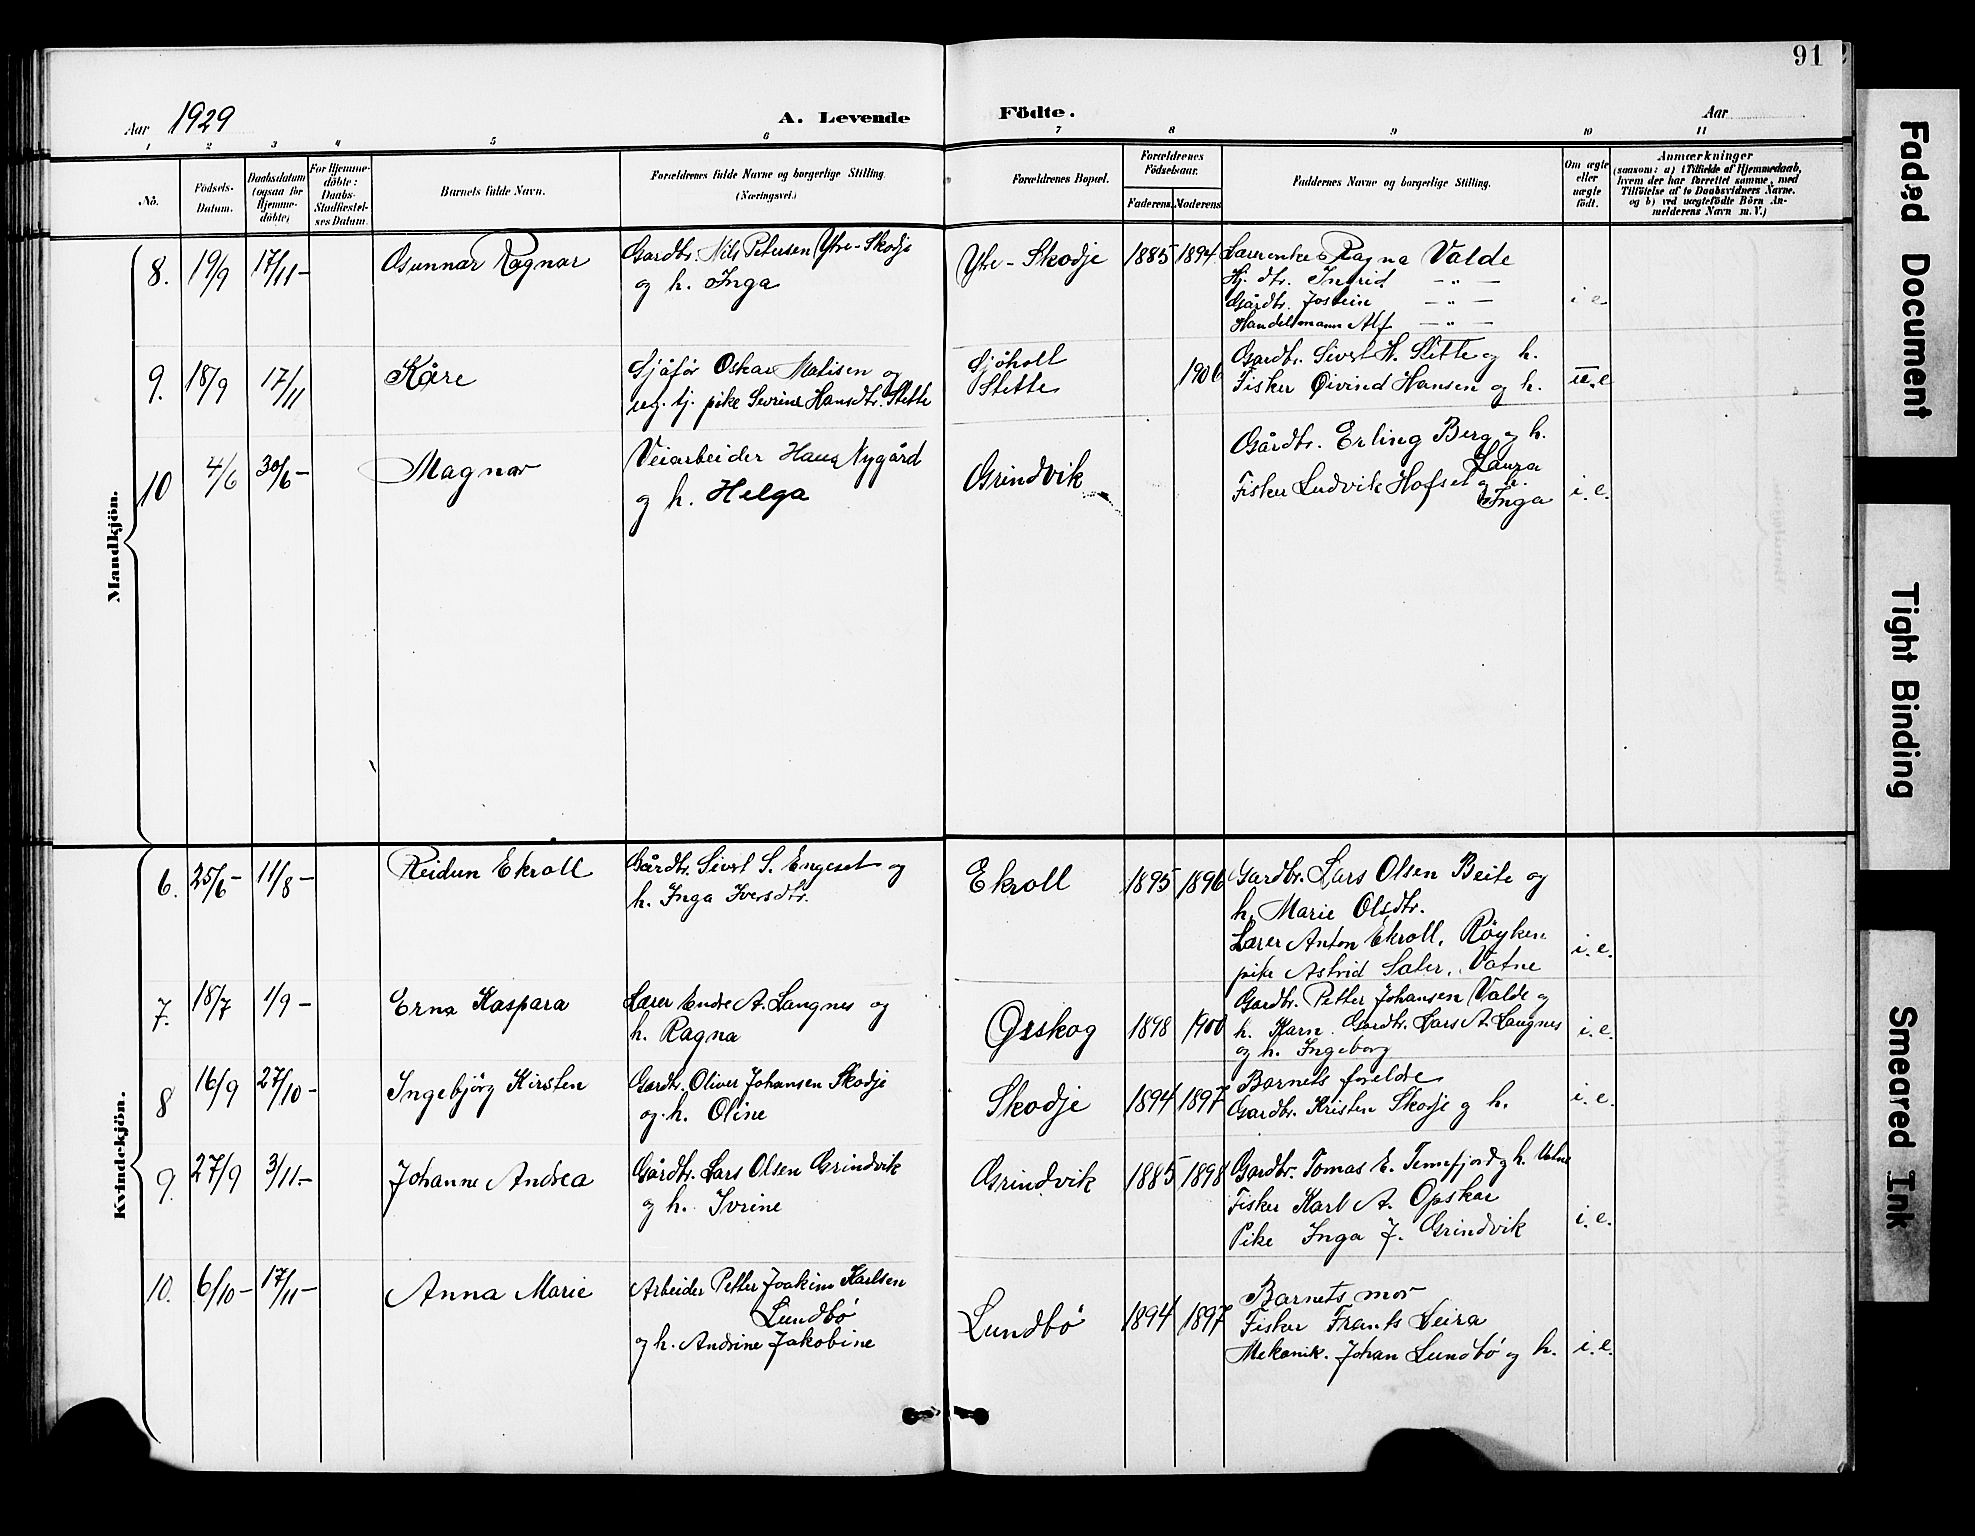 91
Aar 1929
A. Levende Födte.
Aar
1 2 3 4 5 6 7 8 9 10 11
No.
Fodsels-Datum.
Daabsdatum (ogsaa for Hjemme-döbte)
For Hjemme-döbte: Daabs-Stadfæstel-ses Datum.
Barnets fulde Navn.
Forældrenes fulde Navne og borgerlige Stilling.
(Næringsvei.)
Forældrenes Bopæl.
Forældrenes Födselsaar.
Faderens. Moderens.
Faddernes Navne og borgerlige Stilling.
Om ægte eller uægte födt.
Anmærkninger
(saasom: a) i Tilfælde af Hjemmedaab,
hvem der har forrettet samme, med
Tilföielse af to Daabsvidners Navne.
og b) ved uægtefödte Börn An-
melderens Navn m. V.)
Mandkjön.
8. 19/9 17/11- Gunnar Ragnar
Gardbr. Nils Petersen Ytre-Skodje
og h. Inga
Ytre-Skodje 1885 1894
Lærerenke Ragna Valde
Hj. dtr. Ingrid — " —
Gårdbr. Jostein — " —
Handelsmann Alf — " —
i e
9. 18/9 17/11 Kåre
Sjåfør Oskar Matisen og
ug. tj. pike Sevrine Hansdtr. Stette
Sjøholt
Stette
1906
Gardbr. Sivert H. Stette og h.
Fisker Øivind Hansen og h.
u.e
10 4/6 30/6- Magnar
Veiarbeider Hans Nygård
og h. Helga
Grindvik
Gårdbr. Erling Berg og h.
Laura
Fisker Ludvik Hofset og h.
Inga
i. e.
Kvindekjön.
6. 25/6- 11/8- Reidun Ekroll
Gårdbr. Sivert S. Engeset og
h. Inga Iversdtr.
Ekroll 1895 1896
Gardbr. Lars Olsen Beite og
h. Marie Olsdtr.
Lærer Anton Ekroll, Røyken
pike Astrid Sæter, Vatne
i. e.
7. 18/7 1/9- Erna Kaspara
Lærer Endre A. Langnes og
h. Ragna
Ørskog 1898 1900
Gardbr. Petter Johansen Valde og
h. Karn. Gardbr. Lars A. Langnes
og h. Ingeborg
i. e.
8 16/9 27/10- Ingebjörg Kirsten
Gardbr. Oliver Johansen Skodje
og h. Oline
Skodje 1894 1897
Barnets foreldre
Gardbr. Kristen Skodje og h.
i. e.
9. 27/9 3/11.- Johanne Andrea
Gårdbr. Lars Olsen Grindvik
og h. Ivrine
Grindvik 1885 1898
Gardbr. Tomas E. Tennefjord og h. Vatne
Fisker Karl A. Opskar
Pike Inga J. Grindvik
i. e.
10. 6/10- 17/11- Anna Marie
Arbeider Petter Joakim Karlsen
Lundbø
og h. Andrine Jakobine
Lundbø 1894 1897
Barnets mor
Fisker Frants Leira
Mekanik. Johan Lundbø og h.
i. e.
Faded Document
Tight Binding
Smeared Ink